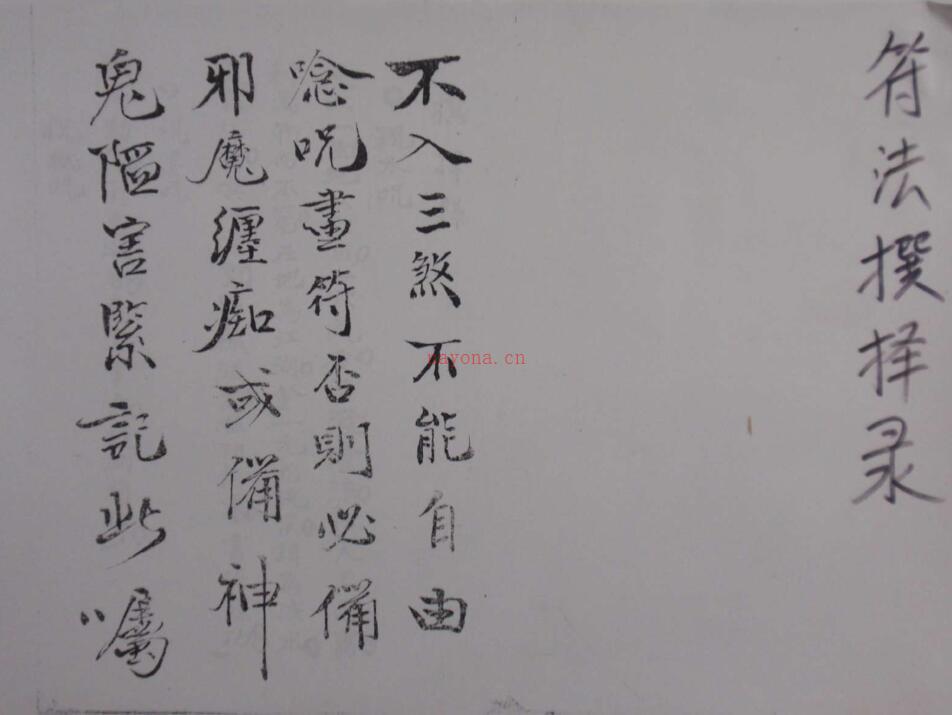 符法撰择录
不入三煞不能自由
唸呪畫符否則必備
邪魔纏痴或備神
鬼害緊記此囑
nayona.cn